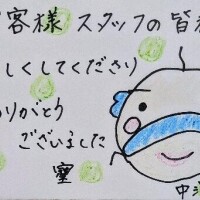 客様 スタッフの皆
しくしてくださり
りがとう
ございました
中